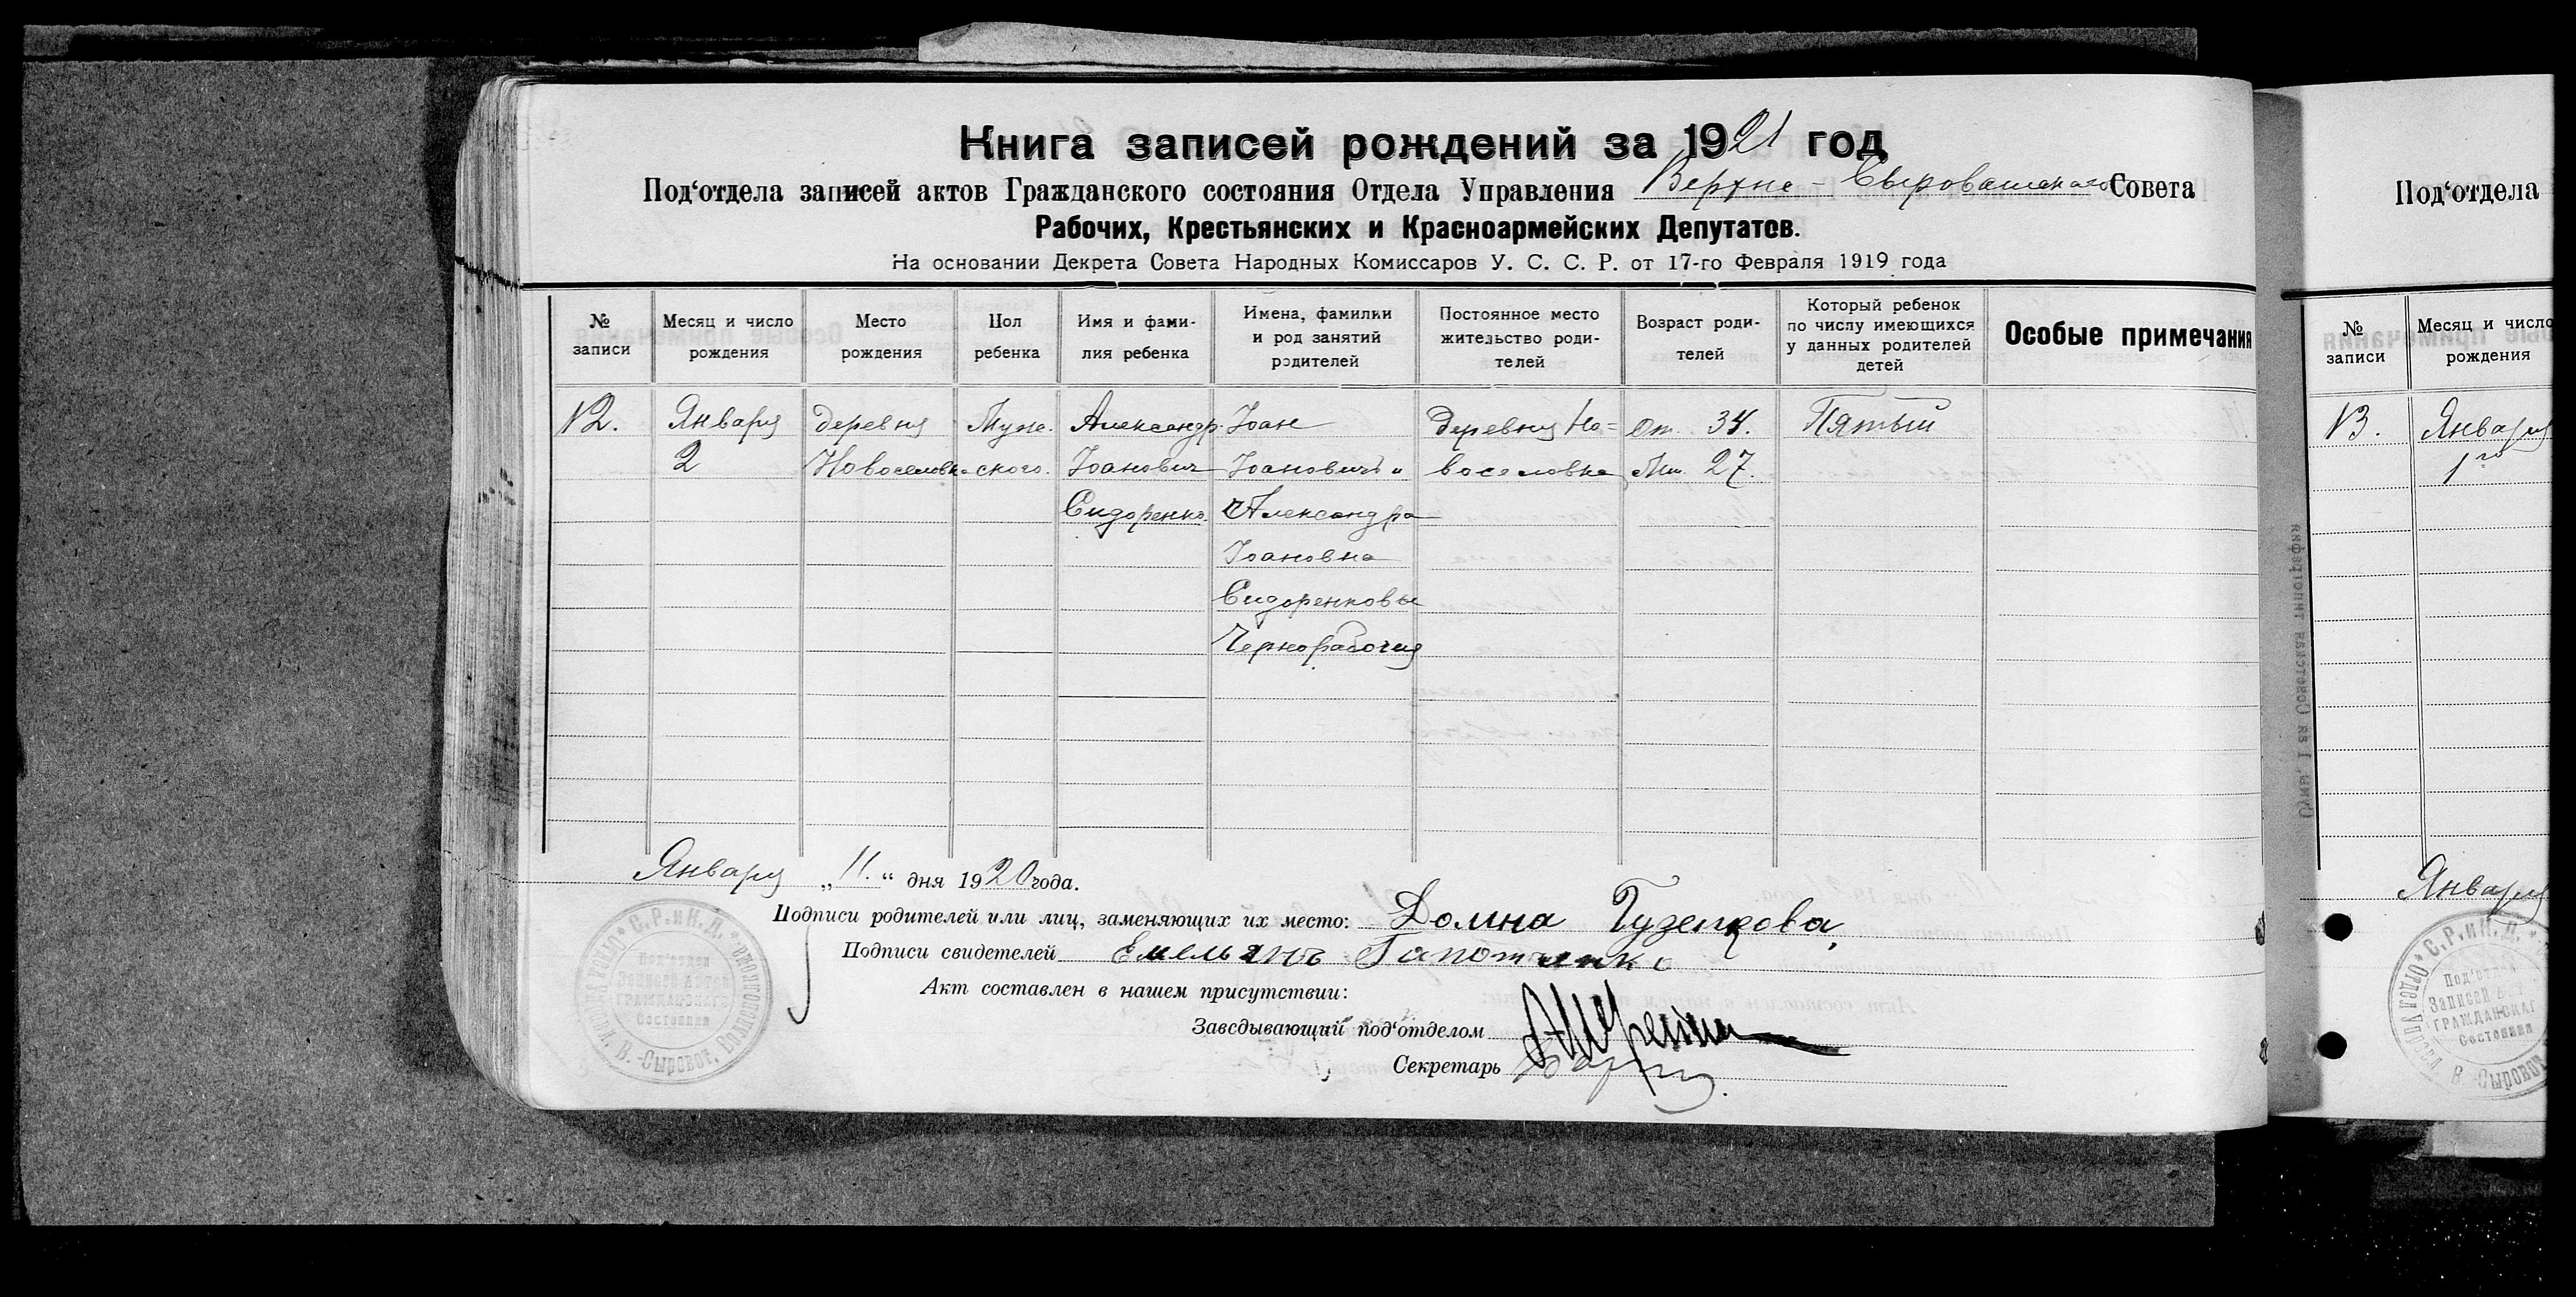 Книга записей рождений за 1921 год
Под'отдела записей актов Гражданского состояния Отдела Управления Верхне-Сыроватского Совета
Рабочих, Крестьянских и Красноармейских Депутатов.
На основании Декрета Совета Народных Комиссаров У. С. С. Р. от 17-го Февраля 1919 года
№ записи
Месяц и число рождения
Место рождения
Пол ребенка
Имя и фами-
лия ребенка
Имена, фамилии
и род занятий
родителей
Постоянное место
жительство роди-
телей
Возраст роди-
телей
Который ребенок
по числу имеющихся
у данных родителей
детей
Особые примечания
№2.
Января
2
деревня
Новоселовка
Муж.
ского.
Александр
Іоанович
Сидоренко.
Іоан
Іоановичъ и
Александра
Іоановна
Сидоренковы
Чернорабочия
деревня Но=
воселовка
От. 34.
Мт. 27.
Пятый
Января „11.“ дня 1920 года.
Подписи родителей или лиц, заменяющих их место: Домна
Подписи свидетелей Емельянъ
Акт составлен в нашем присутствии:
Заведывающий под'отделом
Секретарь
С.Р.иК.Д.
Под'отдел
Записей Актов
ГРАЖДАНСКАГО
Состояния
Под'отдела
№ записи
Месяц и число
рождения
№3.
Января
1го
Января
С.Р.иК.Д.
Под'отдел
Записей
ГРАЖДАНСКАГ
Состояния